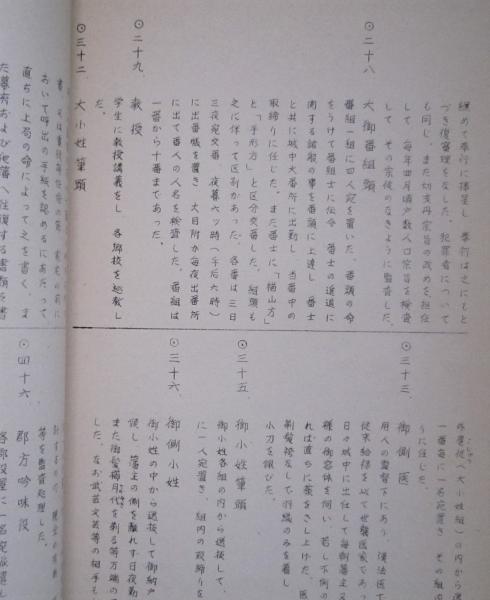 纏めて奉行に提呈し 奉行は之にもと
づき復審理をなした。犯罪者について
も同じ。また切支丹宗旨の改めを担任
して 毎年四月頃戸数人口宗旨を検査
して その宗徒のなきように監査した。
⊙二十八 大御番組頭
番組一組に四人宛を置いた。番頭の命
をうけて番組士に伝令 番士の進退に
関する諸般の事を番頭に上達し 番士
と共に城中大番所に出勤し 当番中の
取締りに任じた。また番士に「楢山方」
と「手形方」と区分交番した。組頭も
之に伴って区別かあった。各番は三日
三夜宛交番、夜暮六ツ時（午后六時）
に出番城を置き 大目附か毎夜出番所
に出て番人の人名を検査した。番組は
一番から十番まであった。
⊙二十九、 教授
学生に教授講義をし 各郷校を巡教し
た。
⊙三十二 大小姓筆頭
おいて呼出の手紙を認めるにあたって
直ちに上局の命によって之を書く。ま
た幕府および他藩へ往復する書類を書
(大小姓組)の内から選
一番毎に一名宛置き その組内
うに任じた。
⊙三十三、 御側医
用人の管督下にあり、漢法医で
従来給禄を以て世襲医家であっ
日々城中に出仕して毎朝藩主又
様の御容体を伺い 若し不例の
れば直ちに薬をさし上げた。医
剃髪袴なしで羽織のみを着し
小刀を佩びた。
⊙三十五、 御小姓筆頭
御小姓各組の内から選抜して、
に一人宛置き、組内の取締りを
⊙三十六、 御側小姓
御小姓の中から選抜して御納戸
候し 藩主の側を離れず日夜勤
また御髪楊月代を剃る等万端の
した。なお武芸文芸等の相手もし
等を監査処理した。
⊙四十六、 郡方吟味役
各郡役置に一名宛